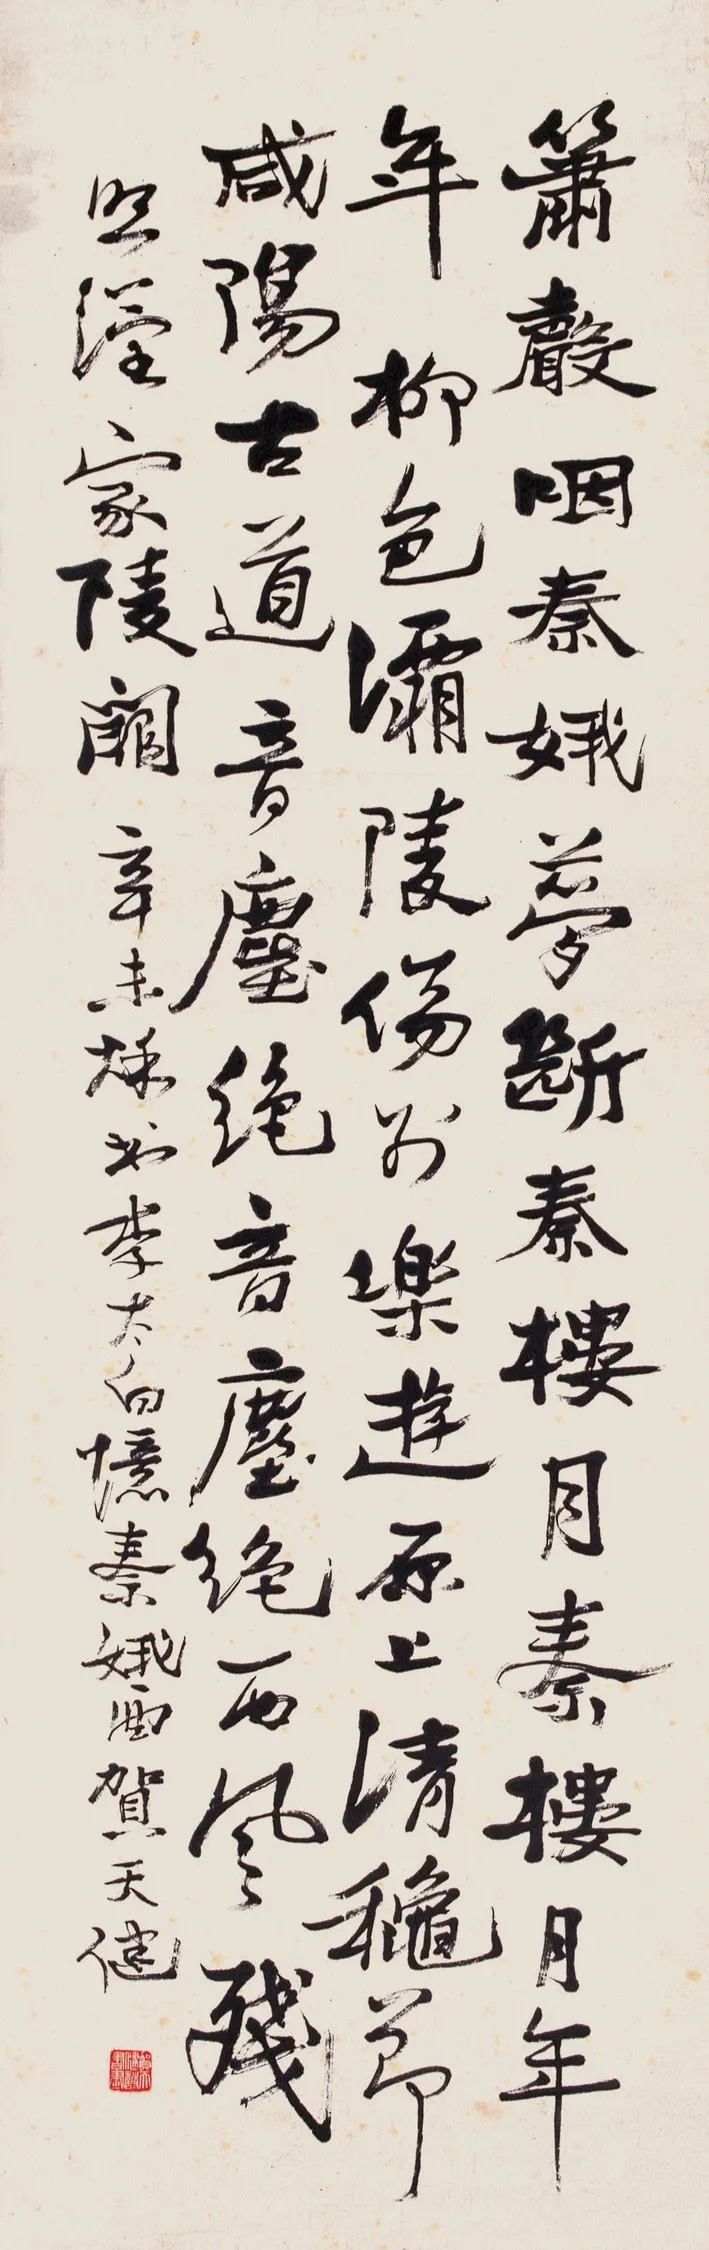 簫聲咽秦娥夢斷秦樓月秦樓月年
年柳色灞陵傷別樂遊原上清龝節
咸陽古道音塵絕音塵絕西風殘
照漢家陵闕 辛未秌書李太白憶秦娥曲賀天健